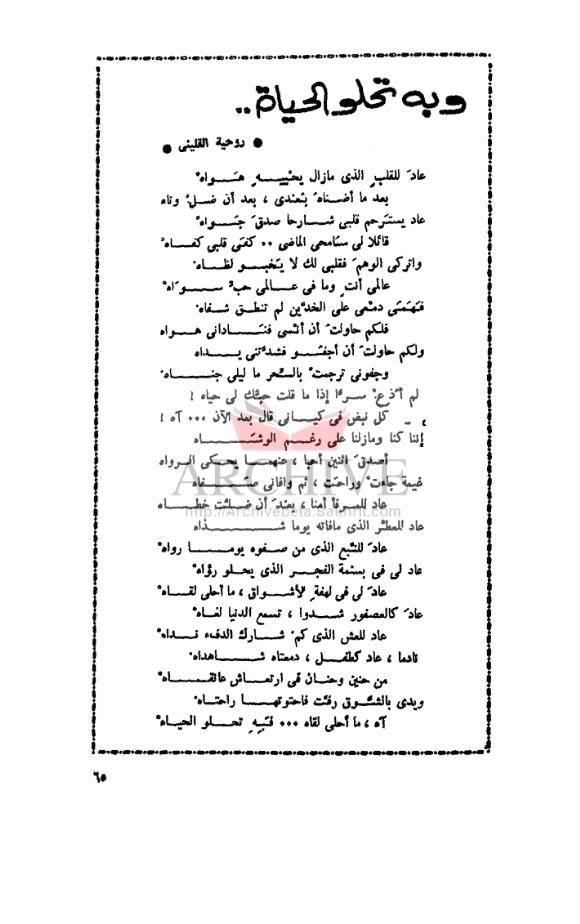 وبه تحلو الحياة ..
● روحية القلينى ●
عادَ للقلبِ الذى مازال يحْييــــهِ هَـــواهْ
بعد ما أضــناهُ بُعدى ، بعد أن ضــلَّ وتاه
عاد يستَرحم قلبى شــارحا صدقَ جَــواهْ
قائلا لى سَامحى الماضى ٠٠ كفَى قلبى كفــاهْ
واتركى الوهمَ فقلبى لك لا يَخبــو لظــاهْ
عالمى أنتِ وما فى عــالمى حبٌ ســـواهْ
فهَمَى دمْعى على الخدَّين لم تنطق شفاهْ
فلكم حاولتَ أن أنْسى فنــادانى هــواه
ولكم حاولتَ أن أجفــو فشدَّتنى يــداه
وجفونى ترجمتْ بالسَّحر ما ليلى جنــاهْ
لم أُذعْ سرًّا إذا ما قلت حبُّك لى حياه !
كل نبض فى كيــانى قال بعد الآن ٠٠٠ آه !
إننا كنا ومازلنا على رغــم الوشــاه
أصدقَ اثنين أحبا ، عنهمــا يحكى الرواه
غيمة جاءتْ وراحتْ ، ثم وافانى صــفاه
عاد للمرفأ أمنا ، بعد أن ضلَّت خطــاه
عاد للعطْر الذى مافاته يوما شــذاه
عادَ للنَّبع الذى من صفوه يومــا رواهْ
عاد لى فى بسْمة الفجــر الذى يحلو رؤاهْ
عادَ لى فى لهفةِ الأشــواق ، ما أحلى لقــاهْ
عادَ كالعصفور شــدوا ، تسمع الدنيا لغــاهْ
عاد للعش الذى كمْ شــارك الدفءَ نــداهْ
نادما ، عاد كطفــل ، دمعتاه شــاهداه
من حنين وحنان فى ارتعــاش عانقــاهْ
ويدى بالشَّوق رفَّت فاحتوتهــا راحتــاهْ
آه ، ما أحلى لقاه ٠٠٠ فَبِهِ تحــلو الحيــاهْ
ARCHIVE
http://Archivebeta.Sakhrit.com
٦٥